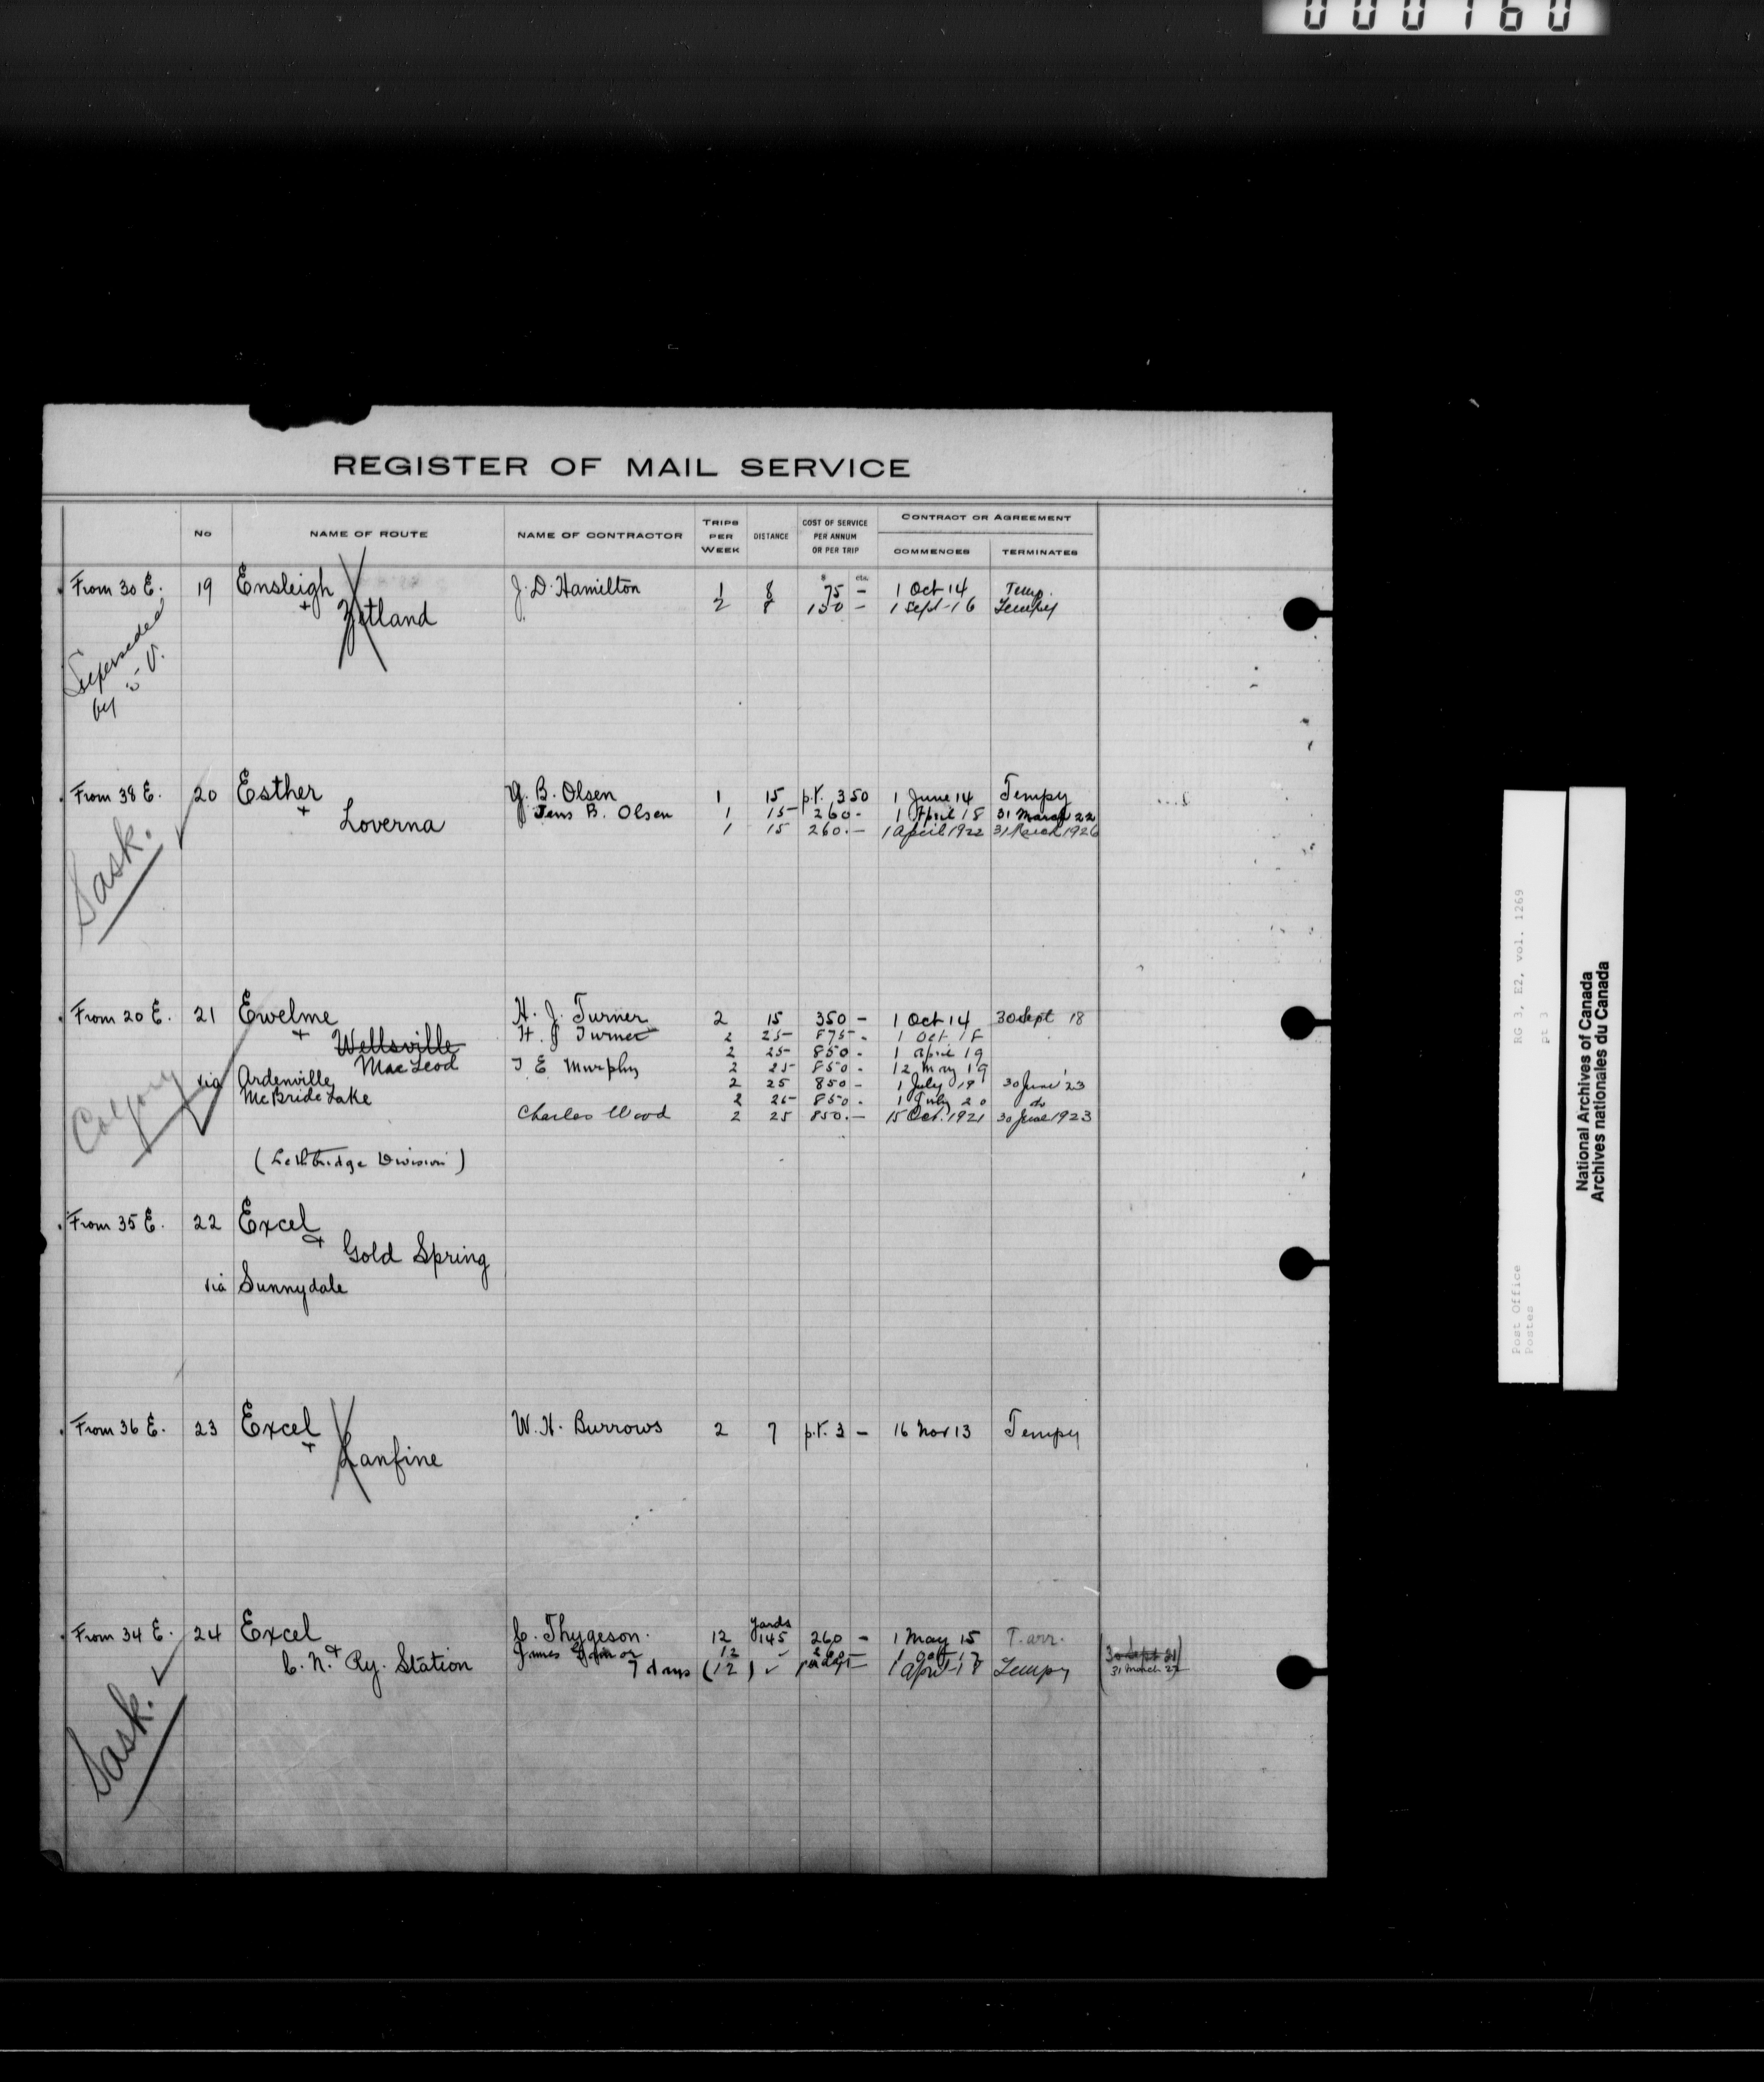 000160
REGISTER OF MAIL SERVICE
No NAME OF ROUTE NAME OF CONTRACTOR TRIPS PER WEEK DISTANCE COST OF SERVICE PER ANNUM OR PER TRIP CONTRACT OR AGREEMENT COMMENCES TERMINATES
$ cts.
From 30 E. 19 Ensleigh J. D. Hamilton 1 8 75 — 1 Oct 14 Temp.
+ Zetland 2 8 150 — 1 Sept 16 Tempy
Superseded
by
From 38 E. 20 Esther J. B. Olsen 1 15 p.t. 3 50 1 June 14 Tempy
+ Loverna Jens B. Olsen 1 15 260 - 1 April 18 31 March 22
1 15 260.— 1 April 1922 31 March 1926
Sask.
From 20 E. 21 Ewelme H. J. Turner 2 15 350 — 1 Oct 14 30 Sept 18
+ Wellsville H. J. Turner 2 25 875 - 1 Oct. 18
MacLeod 2 25 850 - 1 April 19
T E Murphy 2 25 850 - 12 May 19
via Ardenville 2 25 850 — 1 July 19 30 June 23
McBride Lake 2 25 850 - 1 July 20 do
Charles Wood 2 25 850.— 15 Oct. 1921 30 June 1923
Calgary
(Lethbridge Division)
From 35 E. 22 Excel
+ Gold Spring
via Sunnydale
From 36 E. 23 Excel W. H. Burrows 2 7 p.t. 3 — 16 Nov 13 Tempy
+ Lanfine
From 34 E. 24 Excel C. Thygeson. 12 Yards 145 260 — 1 May 15 T. arr.
+ C. N. Ry. Station James 12
7 days (12) 1 April 18 Tempy
30 Sept 21
31 March 22
Sask.
RG 3, E2, vol. 1269
pt 3
Post Office
Postes
National Archives of Canada
Archives nationales du Canada